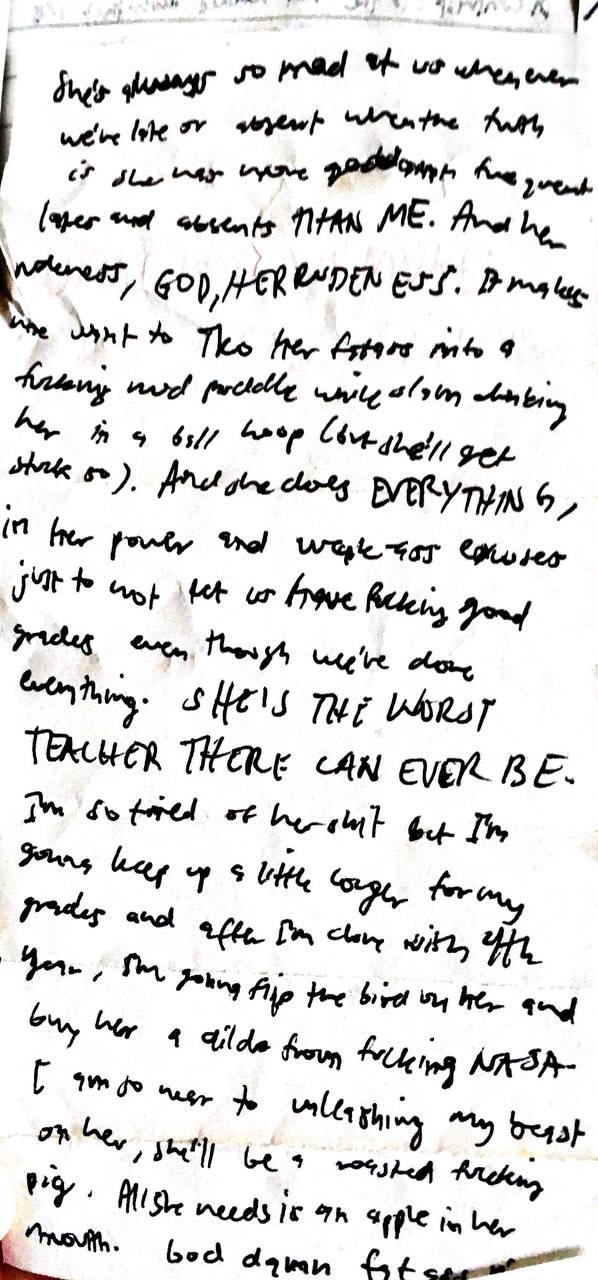 She's always so mad at us whenever
we're late or absent when the truth
is she has more goddamn frequent
lates and absents THAN ME. And her
rudeness, GOD, HER RUDENESS. It makes
me want to TKO her fatass into a
fucking mud puddle while slam dunking
her in a ball hoop (but she'll get
stuck so). And she does EVERYTHING,
in her power and weak-ass excuses
just to not let us have fucking good
grades even though we've done
everything. SHE'S THE WORST
TEACHER THERE CAN EVER BE.
I'm so tired of her shit but I'm
gonna keep up a little longer for my
grades and after I'm done with
Year, I'm gonna flip the bird on her and
buy her a dildo from fucking NASA
I am so near to unleashing my beast
on her, she'll be a roasted fucking
pig. All she needs is an apple in her
mouth. God damn fat